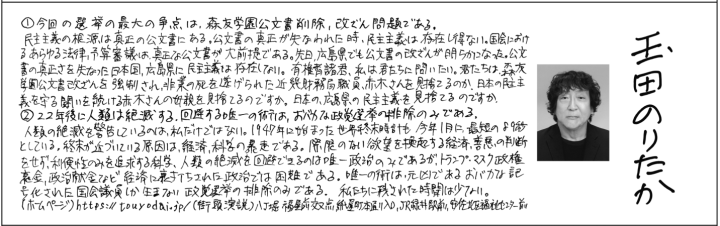 ①今回の選挙の最大の争点は、森友学園公文書削除、改ざん問題である。
民主主義の根源は真正の公文書にある。公文書の真正が失なわれた時、民主主義は存在し得ない。国会における
あらゆる法律、予算審議は、真正な公文書が大前提である。先日、広島県でも公文書の改ざんが明らかになった。公文
書の真正さを失なった日本国、広島県に民主主義は存在しない。有権者諸君、私は君たちに問いたい。君たちは、森友
学園公文書改ざんを強制され、非業の死を遂げられた近畿財務局職員、赤木さんを見捨てるのか、日本の民主主
義を守る闘いを続ける赤木さんの妻を見捨てるのですか。日本の、広島県の民主主義を見捨てるのですか。
②22年後に人類は絶滅する。回避する唯一の術は、おバカな政党選挙の排除のみである。
人類の絶滅を警告しているのは、私だけではない。1947年に始まった世界終末時計も今年1月に、最短の89秒
としている。終末が近づいている原因は、経済、科学の暴走である。際限のない欲望を根底とする経済、善悪の判断
をせず、利便性のみを追求する科学、人類の絶滅を回避できるのは唯一政治のみであるが、トランプ・マスク政権、
裏金、政治献金など経済に裏打ちされた政治では困難である。唯一の術は、元凶であるおバカな記
号化された国会議員しか生まない政党選挙の排除のみである。私たちに残された時間は少ない。
(ホームページ)https://touyodai.jp/(街頭演説)八丁堀福屋前交差点、紙屋町本通り入口、JR緑井駅前、安佐北区総合福祉センター前
玉田のりたか